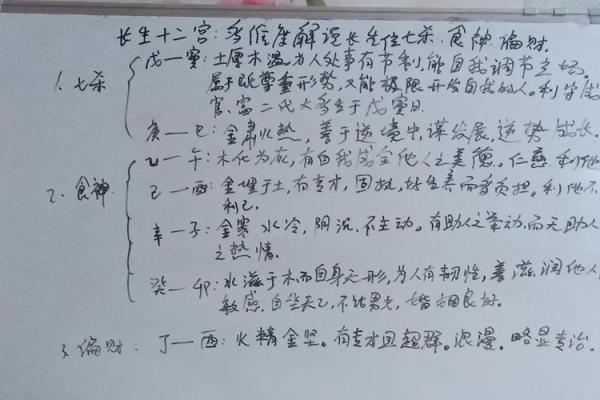 长生十二宫：多维度解说长生位七杀、食神、偏财。
1、七杀
戊一寅：土厚木温，为人处事有节制，能自我调节立场。
属于既尊重形势，又能极限开发自我的人。利
官，富二代大多生于戊寅日
庚一巳：金肃火热，善于逆境中，谋发展，逆势成长。
2、食神
乙一午：木化为灰，有自我成全他人之美德。仁慈利他
己一酉：金埋于土，有专才，固执，好生养而多负担。利他不
利己。
辛一子：金寒水冷，阴沉，不主动。有助人之举动而无助人
之热情。
癸一卯：水滋于木而自身无形，为人有韧性，善滋润他人
敏感，自坐天乙，不论男女，婚姻良好。
3、偏财：丁一酉：火精金坚。有专才且超群。浪漫，略显专治。